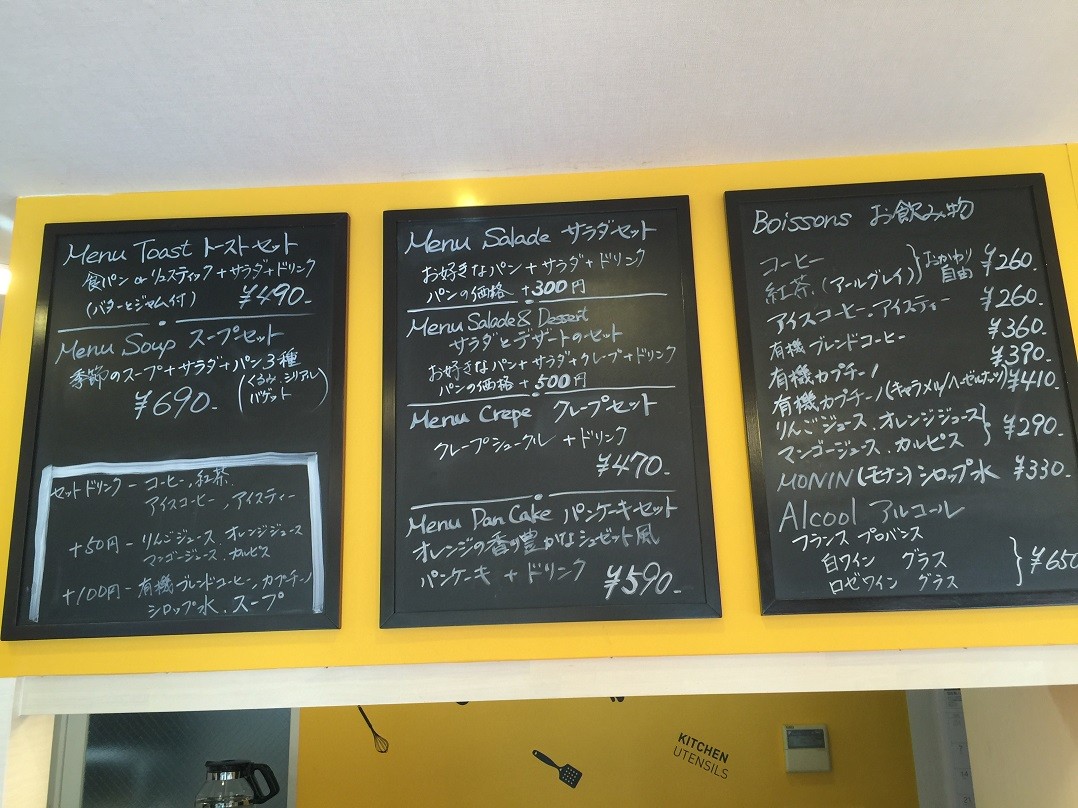 Menu Toast トーストセット
食パン or リュスティック + サラダ + ドリンク
(バターとジャム付) ¥490-
Menu Soup スープセット
季節のスープ + サラダ + パン3種
¥690- (くるみ、シリアル
バゲット)
セットドリンク - コーヒー、紅茶、
アイスコーヒー、アイスティー
+50円 - りんごジュース、オレンジジュース
マンゴージュース、カルピス
+100円 - 有機ブレンドコーヒー、カプチーノ
シロップ水、スープ
Menu Salade サラダセット
お好きなパン + サラダ + ドリンク
パンの価格 +300円
Menu Salade & Dessert
サラダとデザートのセット
お好きなパン + サラダ + クレープ + ドリンク
パンの価格 +500円
Menu Crepe クレープセット
クレープシュークル + ドリンク
¥470-
Menu Pan Cake パンケーキセット
オレンジの香り豊かなシュゼット風
パンケーキ + ドリンク ¥590-
Boissons お飲み物
コーヒー
紅茶 (アールグレイ) おかわり自由 ¥260-
アイスコーヒー、アイスティー ¥260-
有機ブレンドコーヒー ¥360-
有機カプチーノ ¥390-
有機カプチーノ (キャラメル/ヘーゼルナッツ) ¥410-
りんごジュース、オレンジジュース
マンゴージュース、カルピス ¥290-
MONIN (モナン) シロップ水 ¥330-
Alcool アルコール
フランス プロバンス
白ワイン グラス
ロゼワイン グラス ¥650
KITCHEN
UTENSILS